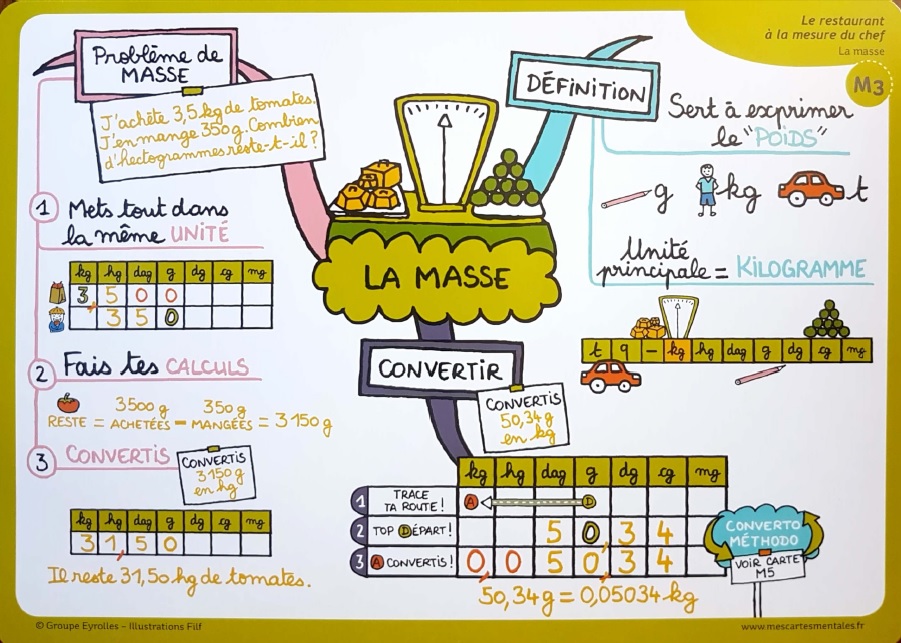 Le restaurant
à la mesure du chef
La masse
M3
Problème de
MASSE
J'achète 3,5 kg de tomates.
J'en mange 350 g. Combien
d'hectogrammes reste-t-il ?
1 Mets tout dans
la même UNITÉ
kg hg dag g dg cg mg
3, 5 0 0
, 3 5 0
2 Fais tes CALCULS
RESTE = 3500 g ACHETÉES − 350 g MANGÉES = 3150 g
3 CONVERTIS
CONVERTIS
3150 g
en hg
kg hg dag g dg cg mg
3 1, 5 0
Il reste 31,50 hg de tomates.
LA MASSE
DÉFINITION
Sert à exprimer
le "POIDS"
g kg t
Unité
principale = KILOGRAMME
t q - kg hg dag g dg cg mg
CONVERTIR
CONVERTIS
50,34 g
en kg
kg hg dag g dg cg mg
1 TRACE
TA ROUTE !
A D
2 TOP DÉPART !
5 0, 3 4
3 A CONVERTIS !
0, 0 5 0, 3 4
50,34 g = 0,05034 kg
CONVERTO
MÉTHODO
VOIR CARTE
M5
© Groupe Eyrolles - Illustrations Filf
www.mescartesmentales.fr